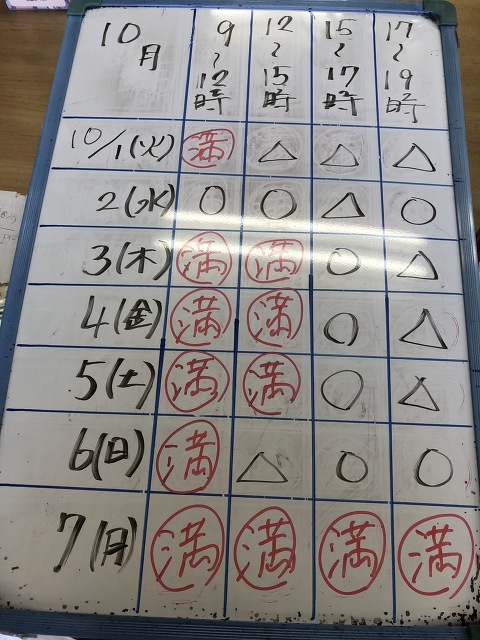 10月 9〜12時 12〜15時 15〜17時 17〜19時
10/1(火) 満 △ △ △
2(水) ○ ○ △ ○
3(木) 満 満 ○ △
4(金) 満 満 ○ △
5(土) 満 満 ○ △
6(日) 満 △ ○ ○
7(月) 満 満 満 満